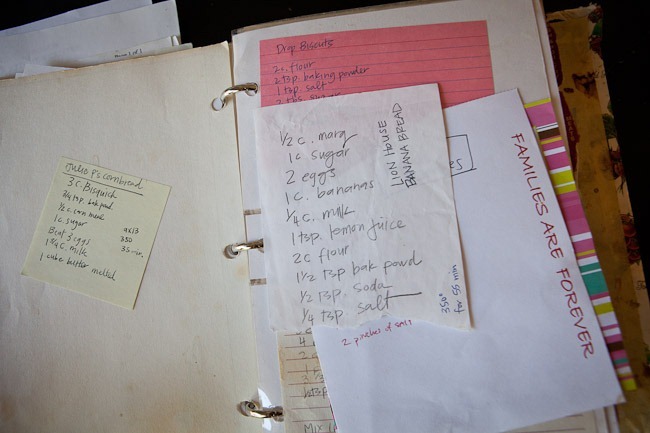 Julio P's cornbread
3 c. Bisquick
3/4 tsp. bak powd
1/2 c. corn meal
1 c. sugar
Beat 3 eggs
1 3/4 c. milk
1 cube butter melted
9x13
350
35 min.
Drop Biscuits
2 c. flour
2 tsp. baking powder
1 tsp. salt
2 tbs. sugar
1/2 c. marg
1 c. sugar
2 eggs
1 c. bananas
1/4 c. milk
1 tsp. lemon juice
2 c flour
1 1/2 tsp bak powd
1/2 tsp. soda
1/4 tsp salt
LION HOUSE
BANANA BREAD
350°
for 55 min
FAMILIES ARE FOREVER
2 pinches of salt